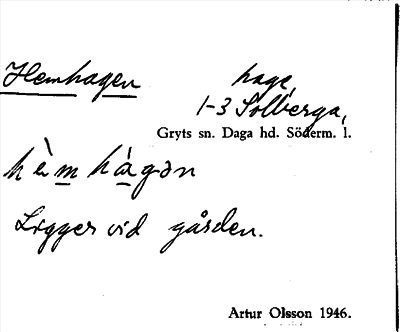 Hemhagen hage,
1-3 Solberga,
Gryts sn. Daga hd. Söderm. l.
hèm hágən
Ligger vid gården.
Artur Olsson 1946.